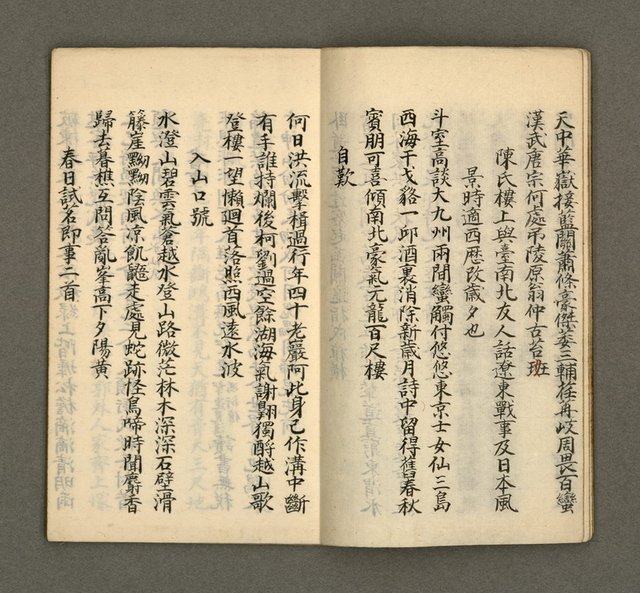 天中華嶽接藍關蕭條豪傑委三輔荏苒岐周畏百蠻
漢武唐宗何處弔陵原翁仲古苔班
陳氏樓上與臺南北友人話遼東戰事及日本風
景時適西歷改歲夕也
斗室高談大九州兩間蠻觸付悠悠東京士女仙三島
西海干戈貉一邱酒裏消除新歲月詩中留得舊春秋
賓朋可喜傾南北豪氣元龍百尺樓
自歎
何日洪流擊楫過行年四十老巖阿此身已作溝中斷
有手誰持爛後柯劉過空餘湖海氣謝翱獨酹越山歌
登樓一望懶迴首落照西風遠水波
入山口號
水澄山碧雲氣蒼越水登山路微茫林木深深石壁滑
籐崖黝黝陰風凉飢鼯走處見蛇跡怪鳥啼時聞麝香
歸去暮樵互問答亂峯高下夕陽黃
春日試茗即事二首